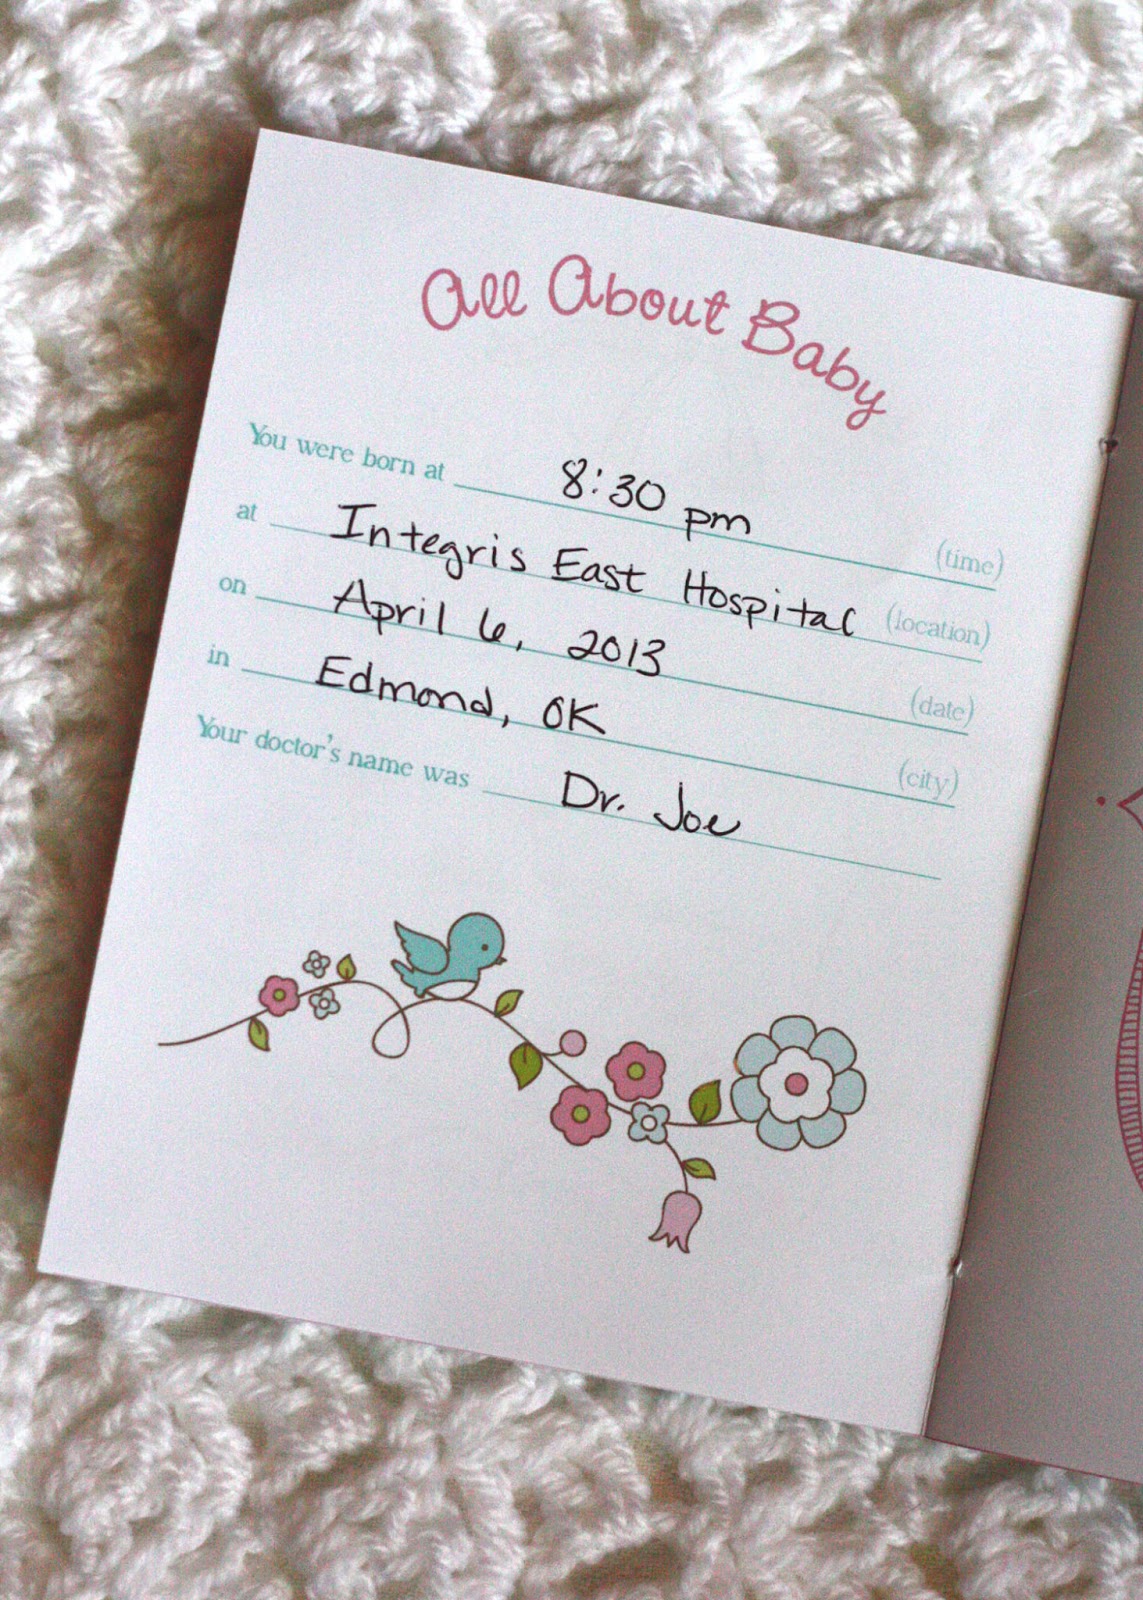 All About Baby
You were born at 8:30 pm (time)
at Integris East Hospital (location)
on April 6, 2013 (date)
in Edmond, OK (city)
Your doctor's name was Dr. Joe